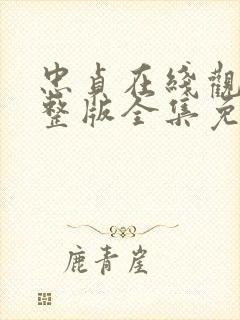 忠貞在綫觀
整版全集免
鹿青崖